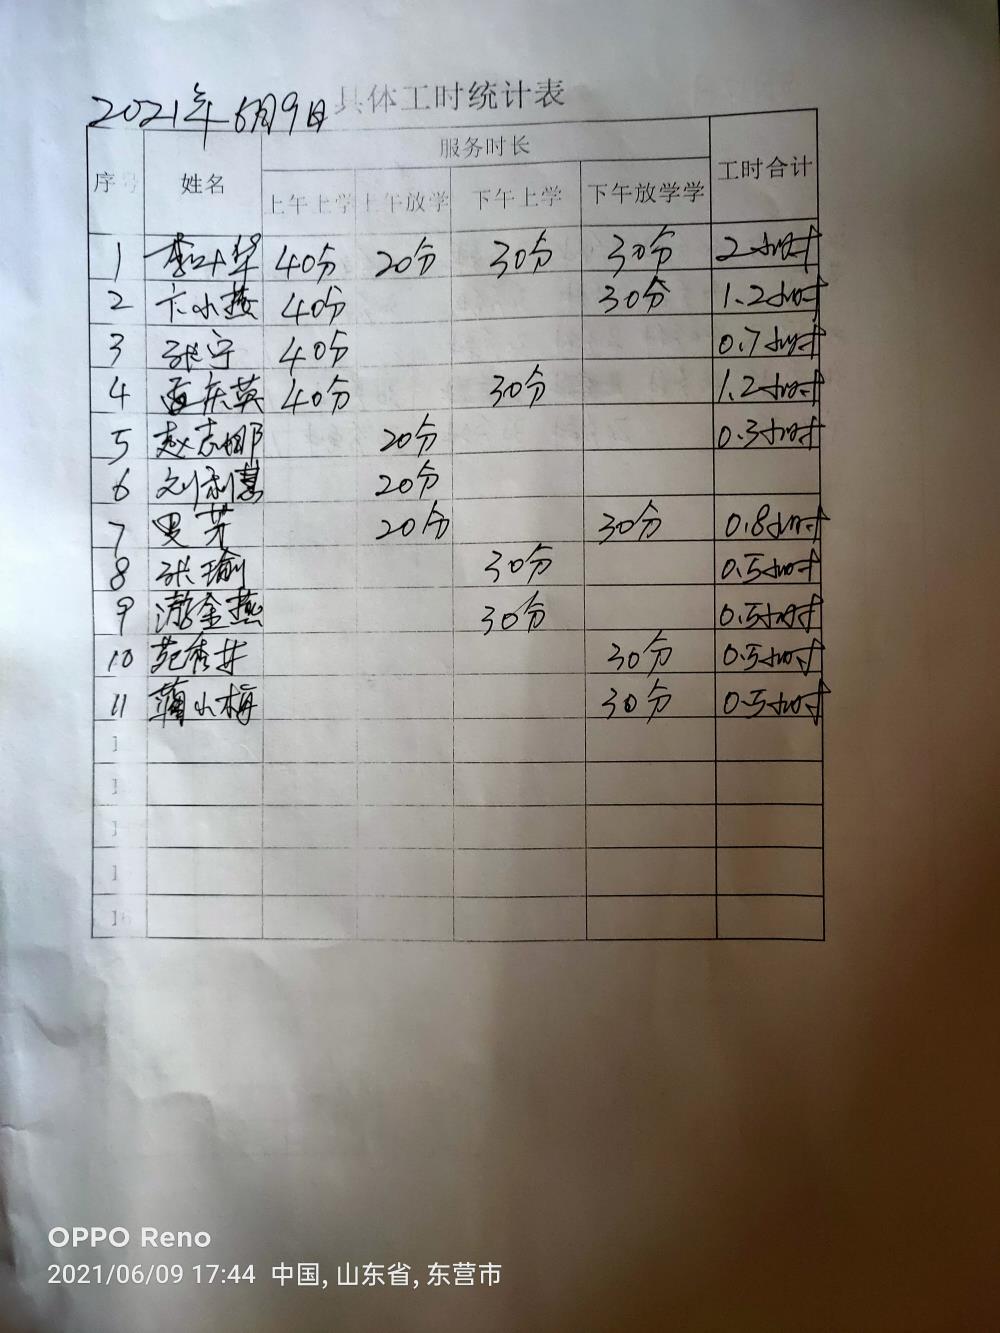 具体工时统计表
2021年6月9日
序号 姓名 服务时长 工时合计
上午上学 上午放学 下午上学 下午放学学
1 李叶华 40分 20分 30分 30分 2小时
2 卞小燕 40分 30分 1.2小时
3 张宁 40分 0.7小时
4 英 40分 30分 1.2小时
5 赵志娜 20分 0.3小时
6 刘利慧 20分
7 罗芳 20分 30分 0.8小时
8 张瑜 30分 0.5小时
9 金燕 30分 0.5小时
10 30分 0.5小时
11 小梅 30分 0.5小时
1
1
1
1
16
OPPO Reno
2021/06/09 17:44 中国, 山东省, 东营市